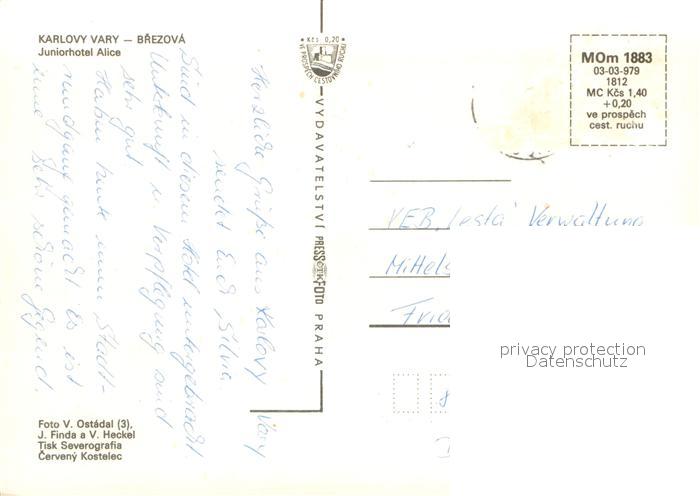 KARLOVY VARY — BŘEZOVÁ
Juniorhotel Alice
Kčs 0,20
VE PROSPĚCH CESTOVNÍHO RUCHU
VYDAVATELSTVÍ PRESSFOTO PRAHA
MOm 1883
03-03-979
1812
MC Kčs 1,40
+0,20
ve prospěch
cest. ruchu
Herzliche Grüße aus Karlovy Vary
sendet Euch
Sind in diesem Hotel untergebracht.
Unterkunft u. Verpflegung sind
sehr gut
Haben heute einen Stadt-
rundgang gemacht. Es ist
eine sehr schöne Gegend.
VEB Verwaltung
Mittels
privacy protection
Datenschutz
Foto V. Ostádal (3),
J. Finda a V. Heckel
Tisk Severografia
Červený Kostelec